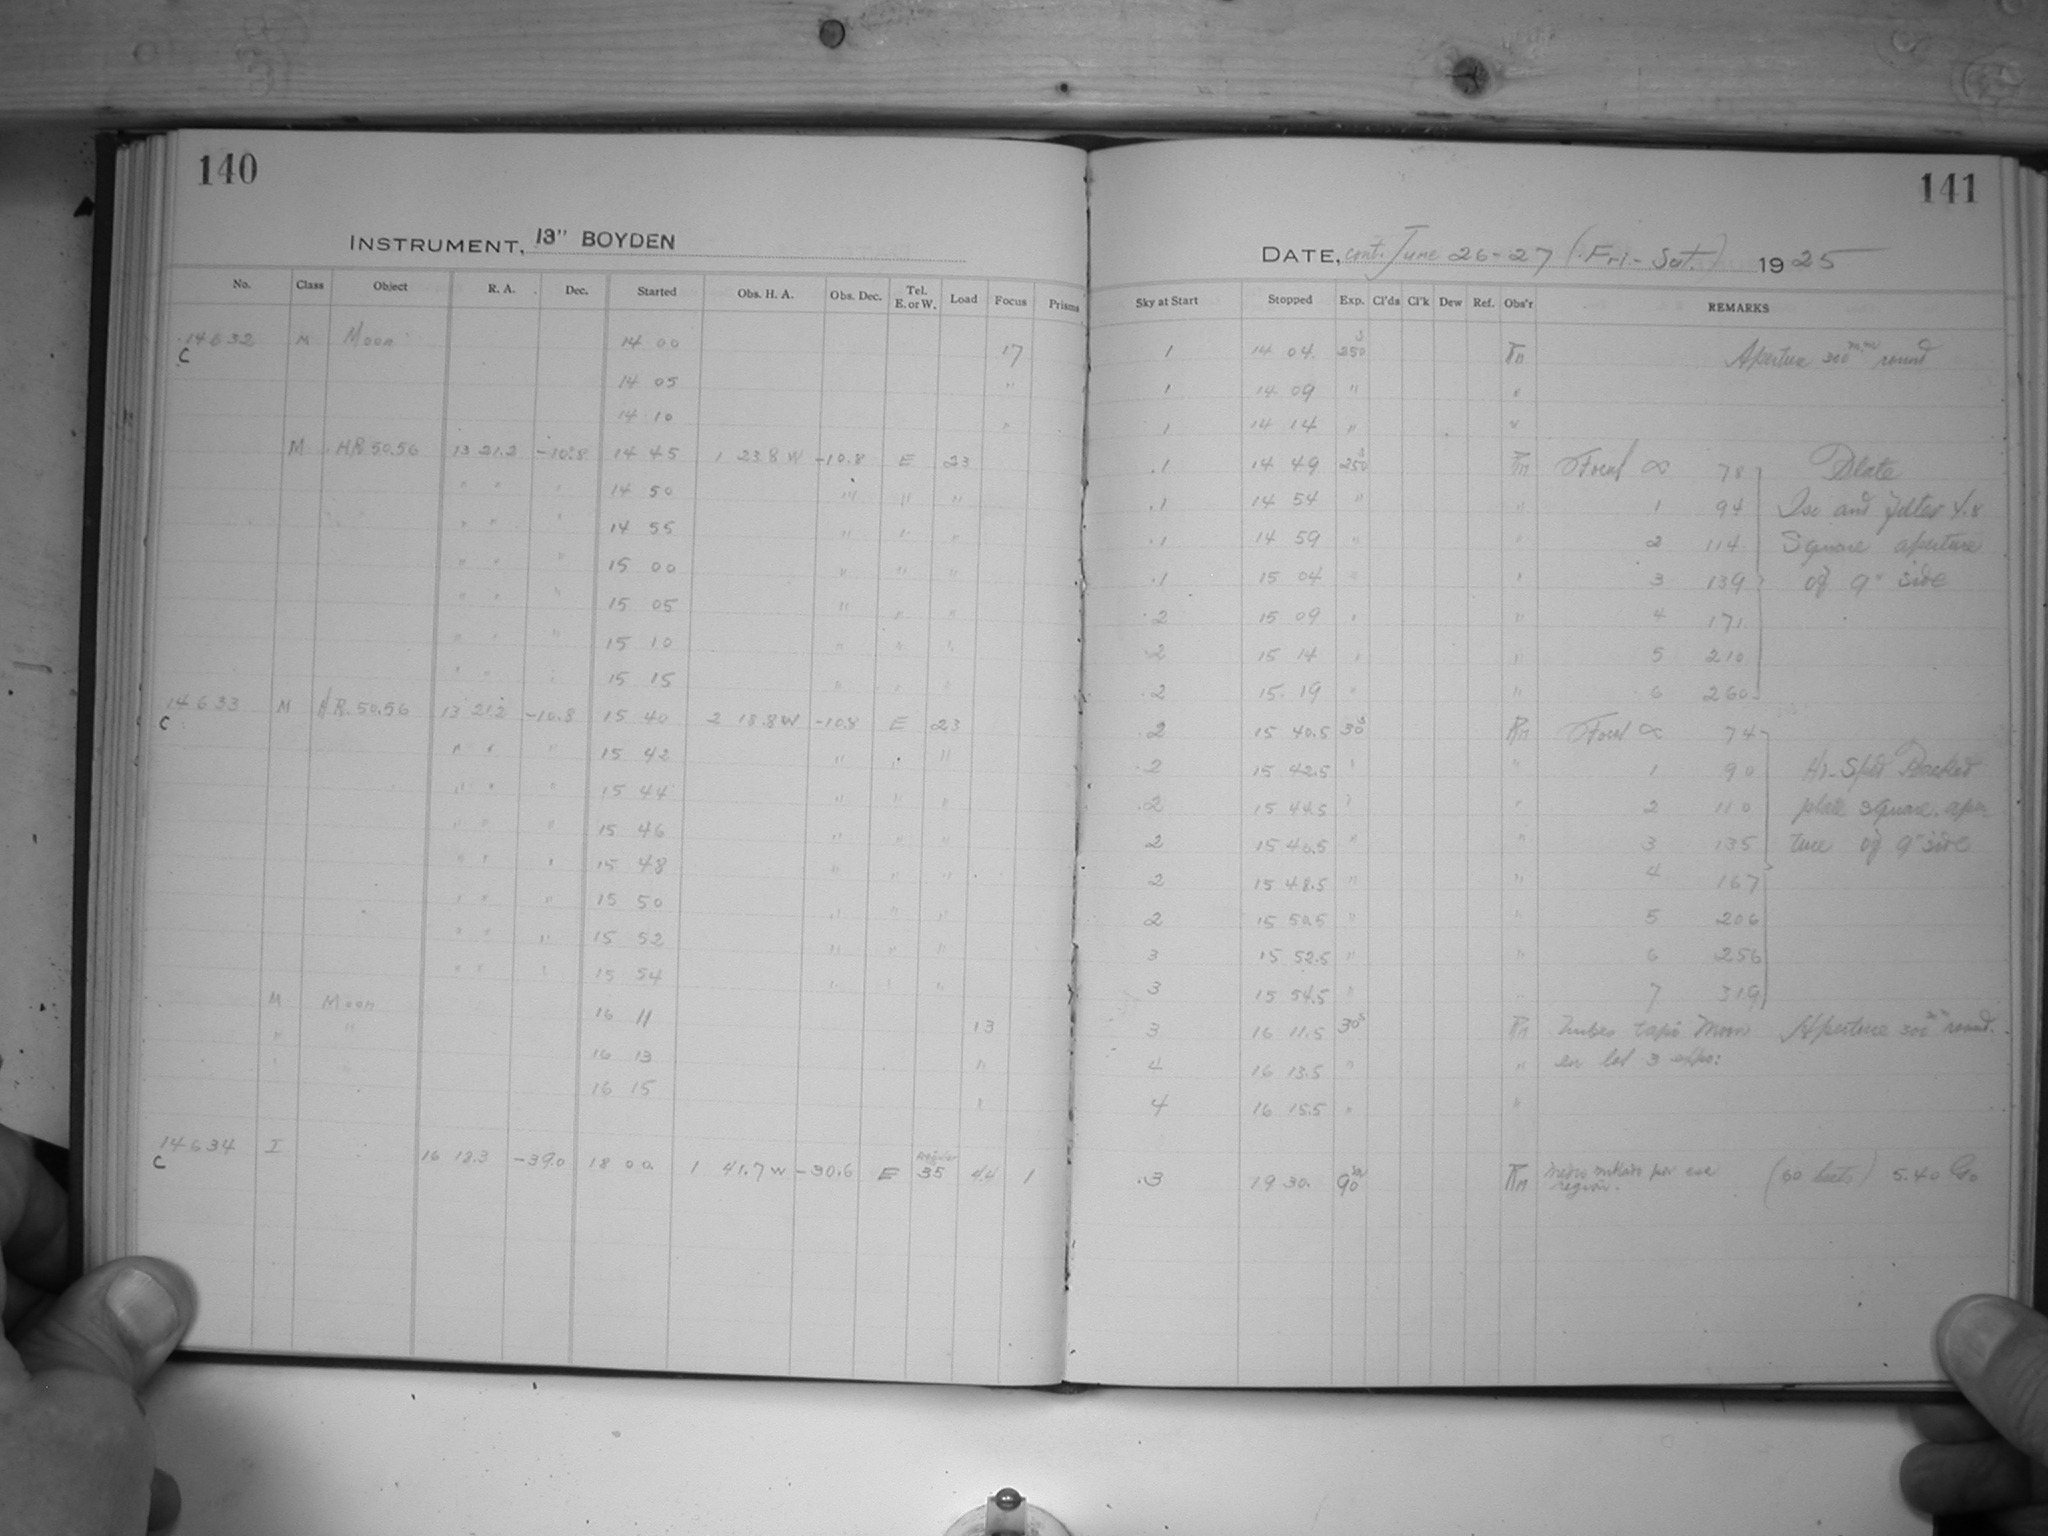 140
INSTRUMENT, 13" BOYDEN
No. Class Object R. A. Dec. Started Obs. H. A. Obs. Dec. Tel. E. or W. Load Focus Prisms
14632 M Moon 14 00 17
C
14 05 "
14 10 "
M H.R. 50.56 13 21.2 -10.8 14 45 1 23.8 W -10.8 E 23
" " " 14 50 " " "
" " " 14 55 " " "
" " " 15 00 " " "
" " " 15 05 " " "
" " " 15 10 " " "
" " " 15 15 " " "
14633 M H.R. 50.56 13 21.2 -10.8 15 40 2 18.8 W -10.8 E 23
C
" " " 15 42 " " "
" " " 15 44 " " "
" " " 15 46 " " "
" " " 15 48 " " "
" " " 15 50 " " "
" " " 15 52 " " "
" " " 15 54 " " "
M Moon 16 11 13
" " 16 13 "
" 16 15 "
14634 I 16 18.3 -39.0 18 00. 1 41.7 W -30.6 E 35 44 1
C
141
DATE, cont. June 26-27 (Fri.-Sat.) 1925
Sky at Start Stopped Exp. Cl'ds Cl'k Dew Ref. Obs'r REMARKS
1 14 04. 250s Aperture 300mm round
1 14 09 " "
1 14 14 " "
.1 14 49 250s 78 Plate
.1 14 54 " " 1 94 Iso and filter 4.8
.1 14 59 " " 2 114 Square aperture
.1 15 04 " " 3 139 of 9" side
.2 15 09 " " 4 171
.2 15 14 " " 5 210
.2 15 19 " " 6 260
.2 15 40.5 30s 74
.2 15 42.5 " " 1 90 Hi-Spd Backed
.2 15 44.5 " " 2 110 plate square aper
2 15 46.5 " " 3 135 ture of 9" side
2 15 48.5 " " 4 167
2 15 50.5 " " 5 206
3 15 52.5 " " 6 256
3 15 54.5 " " 7 319
3 16 11.5 30s Nubes tapo Moon Aperture 300mm round.
4 16 13.5 " " en las 3 expo:
4 16 15.5 " "
.3 19 30. 90m Medio nublado por esa 5.40
region.